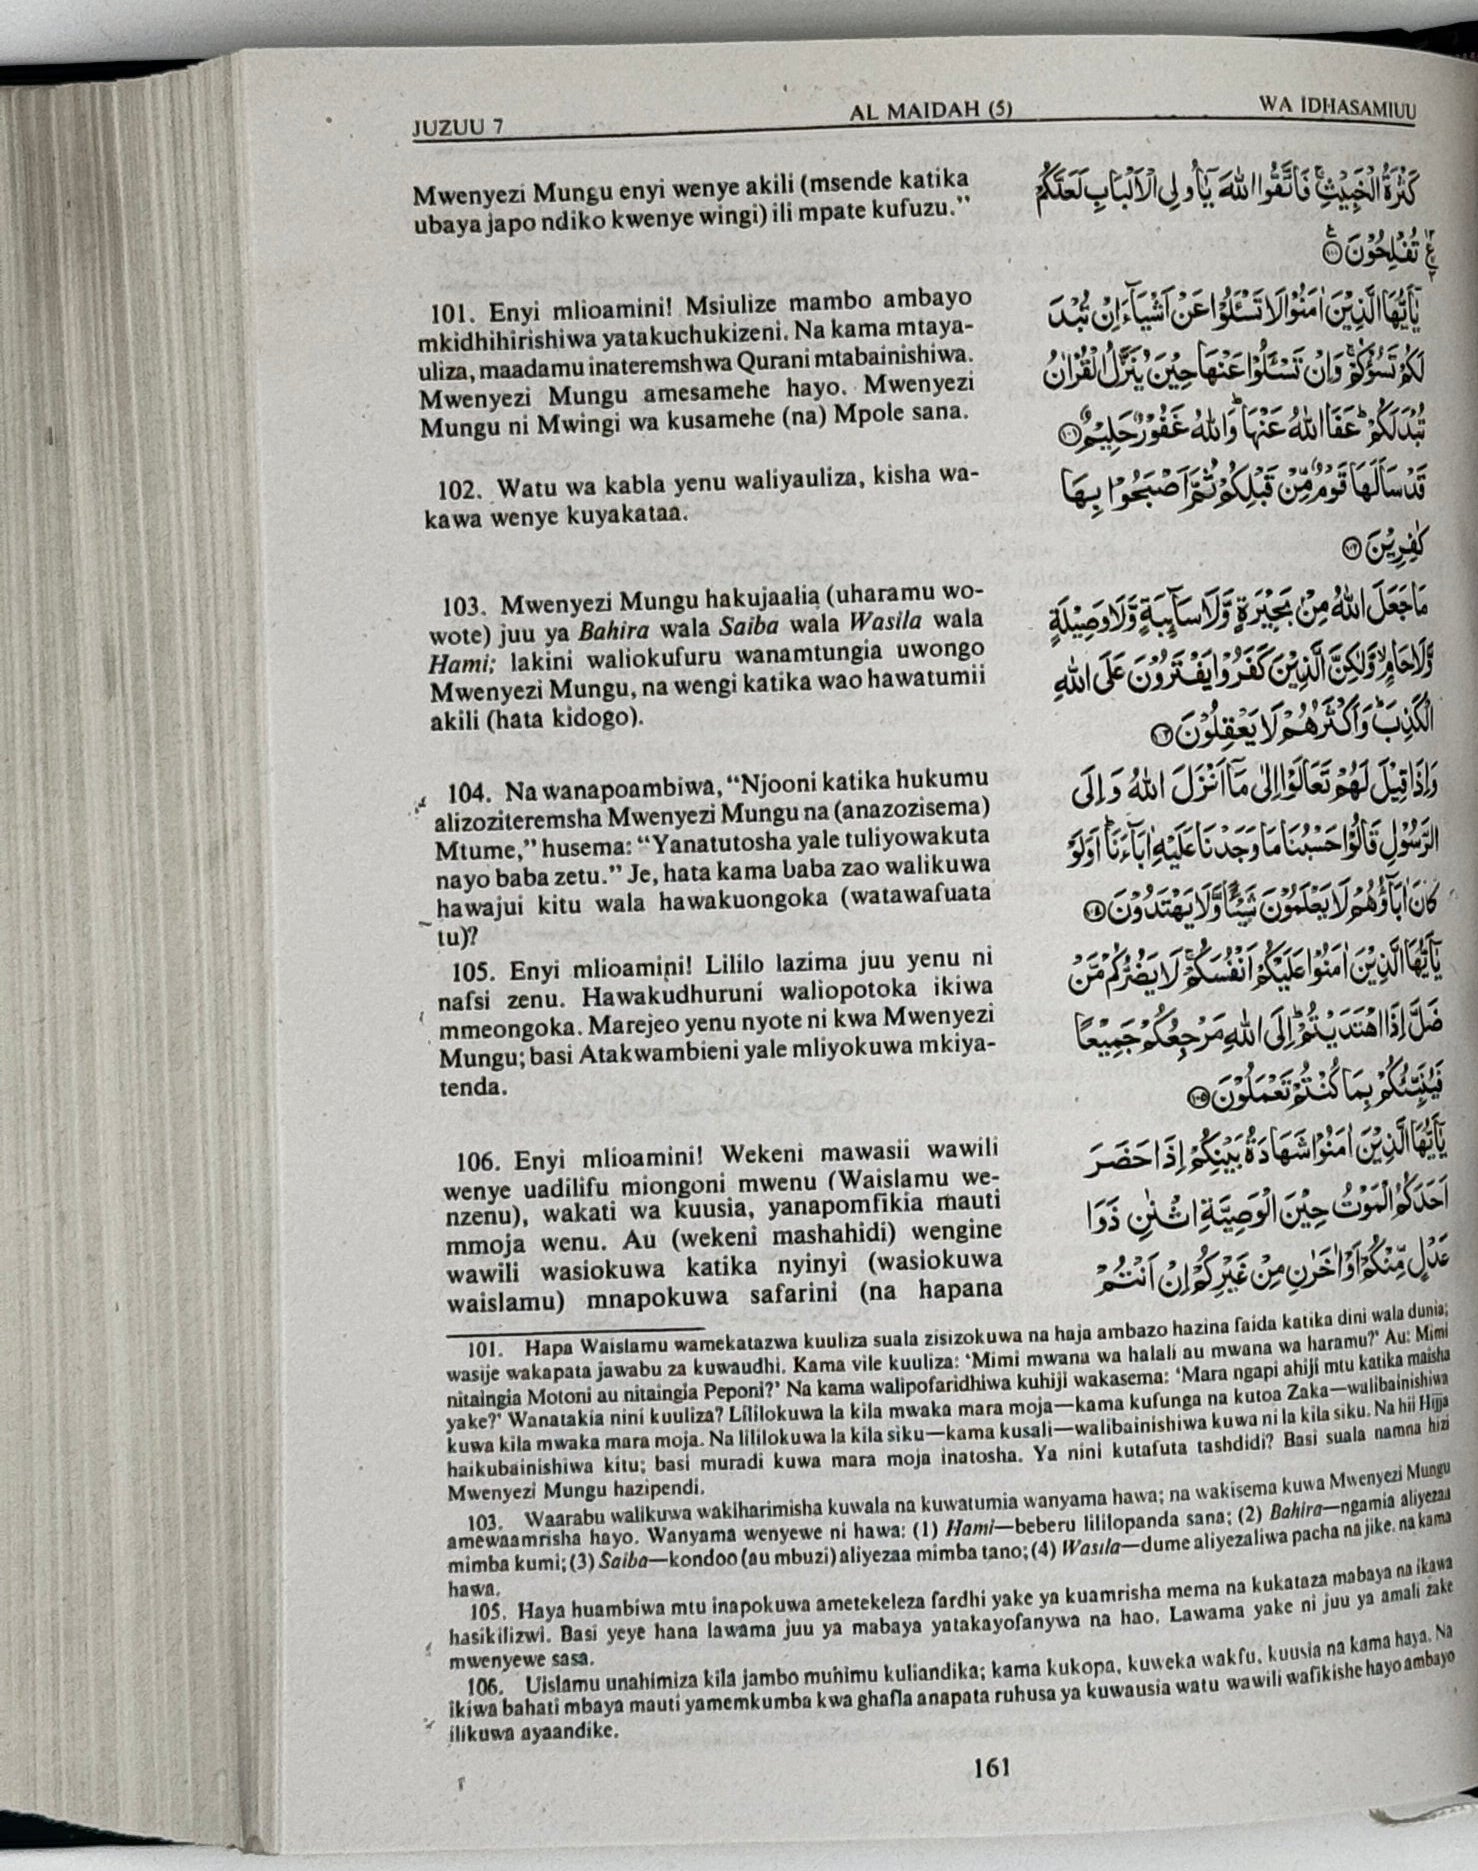 JUZUU 7 AL MAIDAH (5) WA IDHASAMIUU
Mwenyezi Mungu enyi wenye akili (msende katika
ubaya japo ndiko kwenye wingi) ili mpate kufuzu.”
101. Enyi mlioamini! Msiulize mambo ambayo
mkidhihirishiwa yatakuchukizeni. Na kama mtaya-
uliza, maadamu inateremshwa Qurani mtabainishiwa.
Mwenyezi Mungu amesamehe hayo. Mwenyezi
Mungu ni Mwingi wa kusamehe (na) Mpole sana.
102. Watu wa kabla yenu waliyauliza, kisha wa-
kawa wenye kuyakataa.
103. Mwenyezi Mungu hakujaalia (uharamu wo-
wote) juu ya Bahira wala Saiba wala Wasila wala
Hami; lakini waliokufuru wanamtungia uwongo
Mwenyezi Mungu, na wengi katika wao hawatumii
akili (hata kidogo).
104. Na wanapoambiwa, “Njooni katika hukumu
alizoziteremsha Mwenyezi Mungu na (anazozisema)
Mtume,” husema: “Yanatutosha yale tuliyowakuta
nayo baba zetu.” Je, hata kama baba zao walikuwa
hawajui kitu wala hawakuongoka (watawafuata
tu)?
105. Enyi mlioamini! Lililo lazima juu yenu ni
nafsi zenu. Hawakudhuruni waliopotoka ikiwa
mmeongoka. Marejeo yenu nyote ni kwa Mwenyezi
Mungu; basi Atakwambieni yale mliyokuwa mkiya-
tenda.
106. Enyi mlioamini! Wekeni mawasii wawili
wenye uadilifu miongoni mwenu (Waislamu we-
nzenu), wakati wa kuusia, yanapomfikia mauti
mmoja wenu. Au (wekeni mashahidi) wengine
wawili wasiokuwa katika nyinyi (wasiokuwa
waislamu) mnapokuwa safarini (na hapana
كَثْرَةُ الْخَبِيْثِ ۚ فَاتَّقُوا اللّٰهَ يٰٓاُولِى الْاَلْبَابِ لَعَلَّكُمْ
تُفْلِحُوْنَ ۝١٠٠
يٰٓاَيُّهَا الَّذِيْنَ اٰمَنُوْا لَا تَسْـَٔلُوْا عَنْ اَشْيَآءَ اِنْ تُبْدَ
لَكُمْ تَسُؤْكُمْ ۚ وَاِنْ تَسْـَٔلُوْا عَنْهَا حِيْنَ يُنَزَّلُ الْقُرْاٰنُ
تُبْدَ لَكُمْ ؕ عَفَا اللّٰهُ عَنْهَا ؕ وَاللّٰهُ غَفُوْرٌ حَلِيْمٌ ۝١٠١
قَدْ سَاَلَهَا قَوْمٌ مِّنْ قَبْلِكُمْ ثُمَّ اَصْبَحُوْا بِهَا
كٰفِرِيْنَ ۝١٠٢
مَا جَعَلَ اللّٰهُ مِنْۢ بَحِيْرَةٍ وَّلَا سَآئِبَةٍ وَّلَا وَصِيْلَةٍ
وَّلَا حَامٍ ۙ وَّلٰكِنَّ الَّذِيْنَ كَفَرُوْا يَفْتَرُوْنَ عَلَى اللّٰهِ
الْكَذِبَ ؕ وَاَكْثَرُهُمْ لَا يَعْقِلُوْنَ ۝١٠٣
وَاِذَا قِيْلَ لَهُمْ تَعَالَوْا اِلٰى مَآ اَنْزَلَ اللّٰهُ وَاِلَى
الرَّسُوْلِ قَالُوْا حَسْبُنَا مَا وَجَدْنَا عَلَيْهِ اٰبَآءَنَا ؕ اَوَلَوْ
كَانَ اٰبَآؤُهُمْ لَا يَعْلَمُوْنَ شَيْـًٔا وَّلَا يَهْتَدُوْنَ ۝١٠٤
يٰٓاَيُّهَا الَّذِيْنَ اٰمَنُوْا عَلَيْكُمْ اَنْفُسَكُمْ ۚ لَا يَضُرُّكُمْ مَّنْ
ضَلَّ اِذَا اهْتَدَيْتُمْ ؕ اِلَى اللّٰهِ مَرْجِعُكُمْ جَمِيْعًا
فَيُنَبِّئُكُمْ بِمَا كُنْتُمْ تَعْمَلُوْنَ ۝١٠٥
يٰٓاَيُّهَا الَّذِيْنَ اٰمَنُوْا شَهَادَةُ بَيْنِكُمْ اِذَا حَضَرَ
اَحَدَكُمُ الْمَوْتُ حِيْنَ الْوَصِيَّةِ اثْنٰنِ ذَوَا
عَدْلٍ مِّنْكُمْ اَوْ اٰخَرٰنِ مِنْ غَيْرِكُمْ اِنْ اَنْتُمْ
101. Hapa Waislamu wamekatazwa kuuliza suala zisizokuwa na haja ambazo hazina faida katika dini wala dunia;
wasije wakapata jawabu za kuwaudhi. Kama vile kuuliza: ‘Mimi mwana wa halali au mwana wa haramu?’ Au: Mimi
nitaingia Motoni au nitaingia Peponi?’ Na kama walipofaridhiwa kuhiji wakasema: ‘Mara ngapi ahiji mtu katika maisha
yake?’ Wanatakia nini kuuliza? Lililokuwa la kila mwaka mara moja—kama kufunga na kutoa Zaka—walibainishiwa
kuwa kila mwaka mara moja. Na lililokuwa la kila siku—kama kusali—walibainishiwa kuwa ni la kila siku. Na hii Hijja
haikubainishiwa kitu; basi muradi kuwa mara moja inatosha. Ya nini kutafuta tashdidi? Basi suala namna hizi
Mwenyezi Mungu hazipendi.
103. Waarabu walikuwa wakiharimisha kuwala na kuwatumia wanyama hawa; na wakisema kuwa Mwenyezi Mungu
amewaamrisha hayo. Wanyama wenyewe ni hawa: (1) Hami—beberu lililopanda sana; (2) Bahira—ngamia aliyezaa
mimba kumi; (3) Saiba—kondoo (au mbuzi) aliyezaa mimba tano; (4) Wasila—dume aliyezaliwa pacha na jike. na kama
hawa.
105. Haya huambiwa mtu inapokuwa ametekeleza fardhi yake ya kuamrisha mema na kukataza mabaya na ikawa
hasikilizwi. Basi yeye hana lawama juu ya mabaya yatakayofanywa na hao. Lawama yake ni juu ya amali zake
mwenyewe sasa.
106. Uislamu unahimiza kila jambo muhimu kuliandika; kama kukopa, kuweka wakfu, kuusia na kama haya. Na
ikiwa bahati mbaya mauti yamemkumba kwa ghafla anapata ruhusa ya kuwausia watu wawili wafikishe hayo ambayo
ilikuwa ayaandike.
161